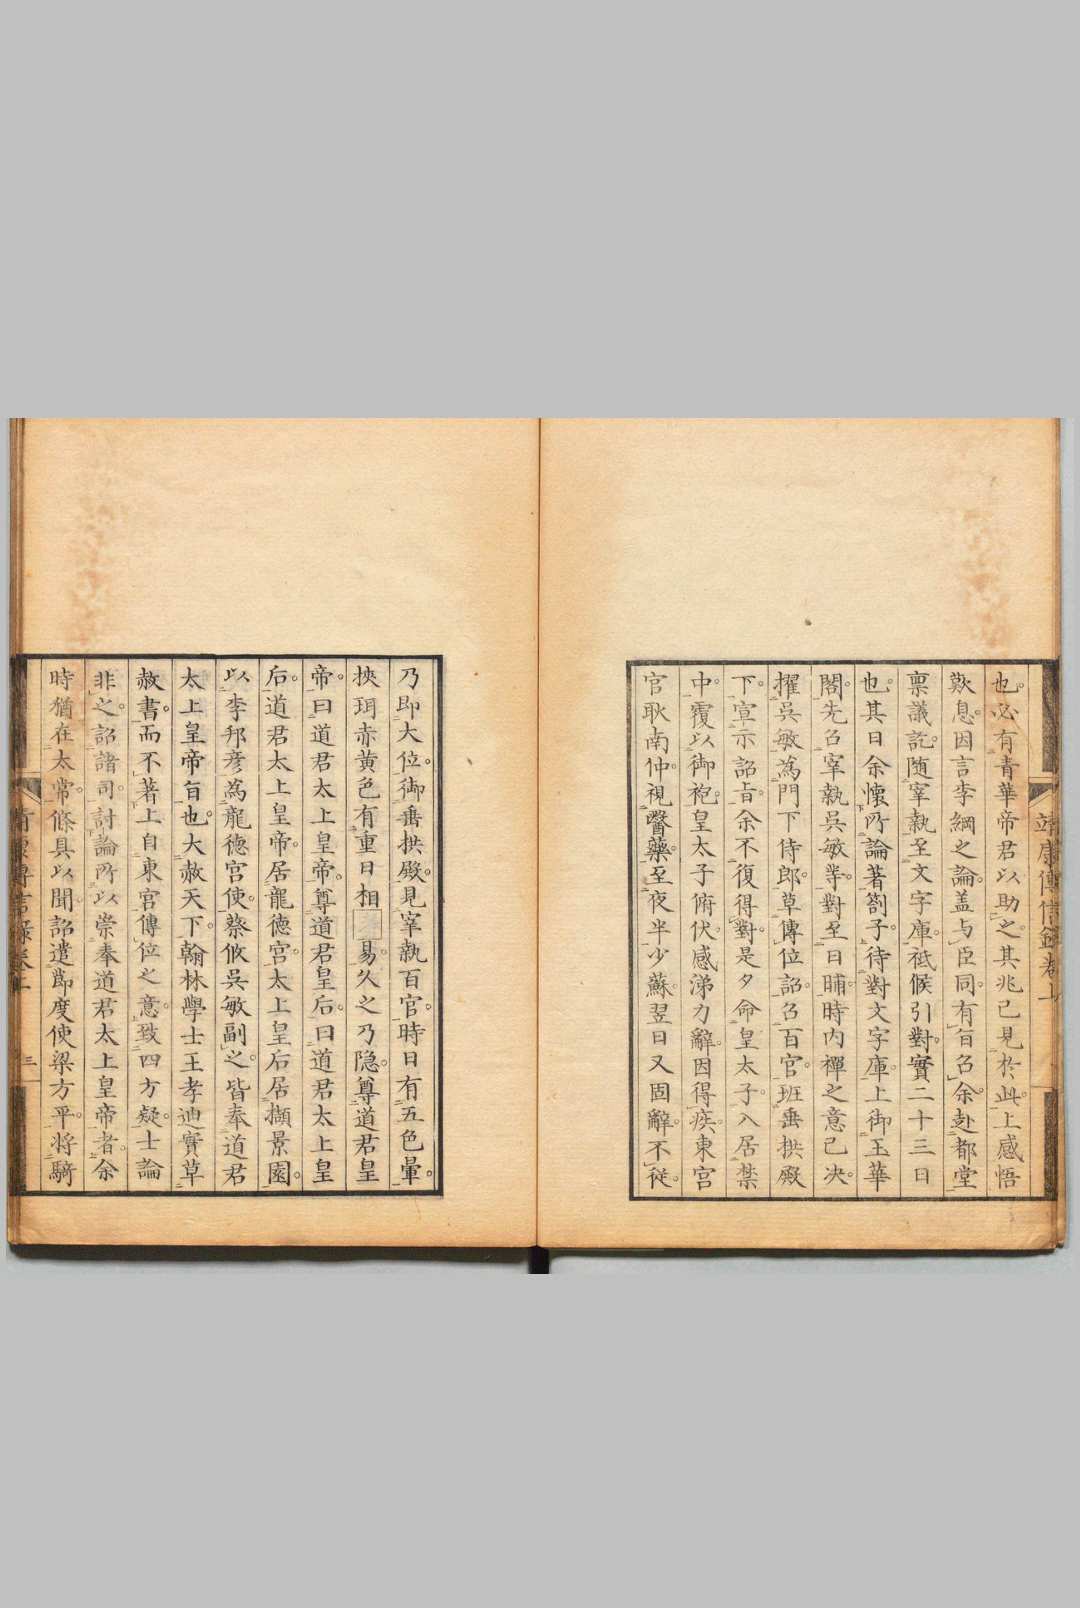 靖康傳信錄卷上
也必有青華帝君以助之其兆已見於此上感悟
歎息因言李綱之論盖与臣同有旨召余赴都堂
禀議訖随宰執至文字庫祗候引對實二十三日
也其日余懷所論著劄子待對文字庫上御玉華
閣先召宰執吳敏等對至日晡時内禪之意已决
擢吳敏為門下侍郎草傳位詔召百官班垂拱殿
下宣示詔旨余不復得對是夕命皇太子入居禁
中覆以御袍皇太子俯伏感涕力辭因得疾東宮
官耿南仲視醫藥至夜半少蘇翌日又固辭不従
乃即大位御垂拱殿見宰執百官時日有五色暈
挾珥赤黄色有重日相易久之乃隐尊道君皇
帝曰道君太上皇帝尊道君皇后曰道君太上皇
后道君太上皇帝居龍德宮太上皇后居擷景園
以李邦彦為龍德宮使蔡攸吳敏副之皆奉道君
太上皇帝旨也大赦天下翰林學士王孝迪實草
赦書而不著上自東宮傳位之意致四方疑士論
非之詔諸司討論所以崇奉道君太上皇帝者余
時猶在太常條具以聞詔遣節度使梁方平将騎
三